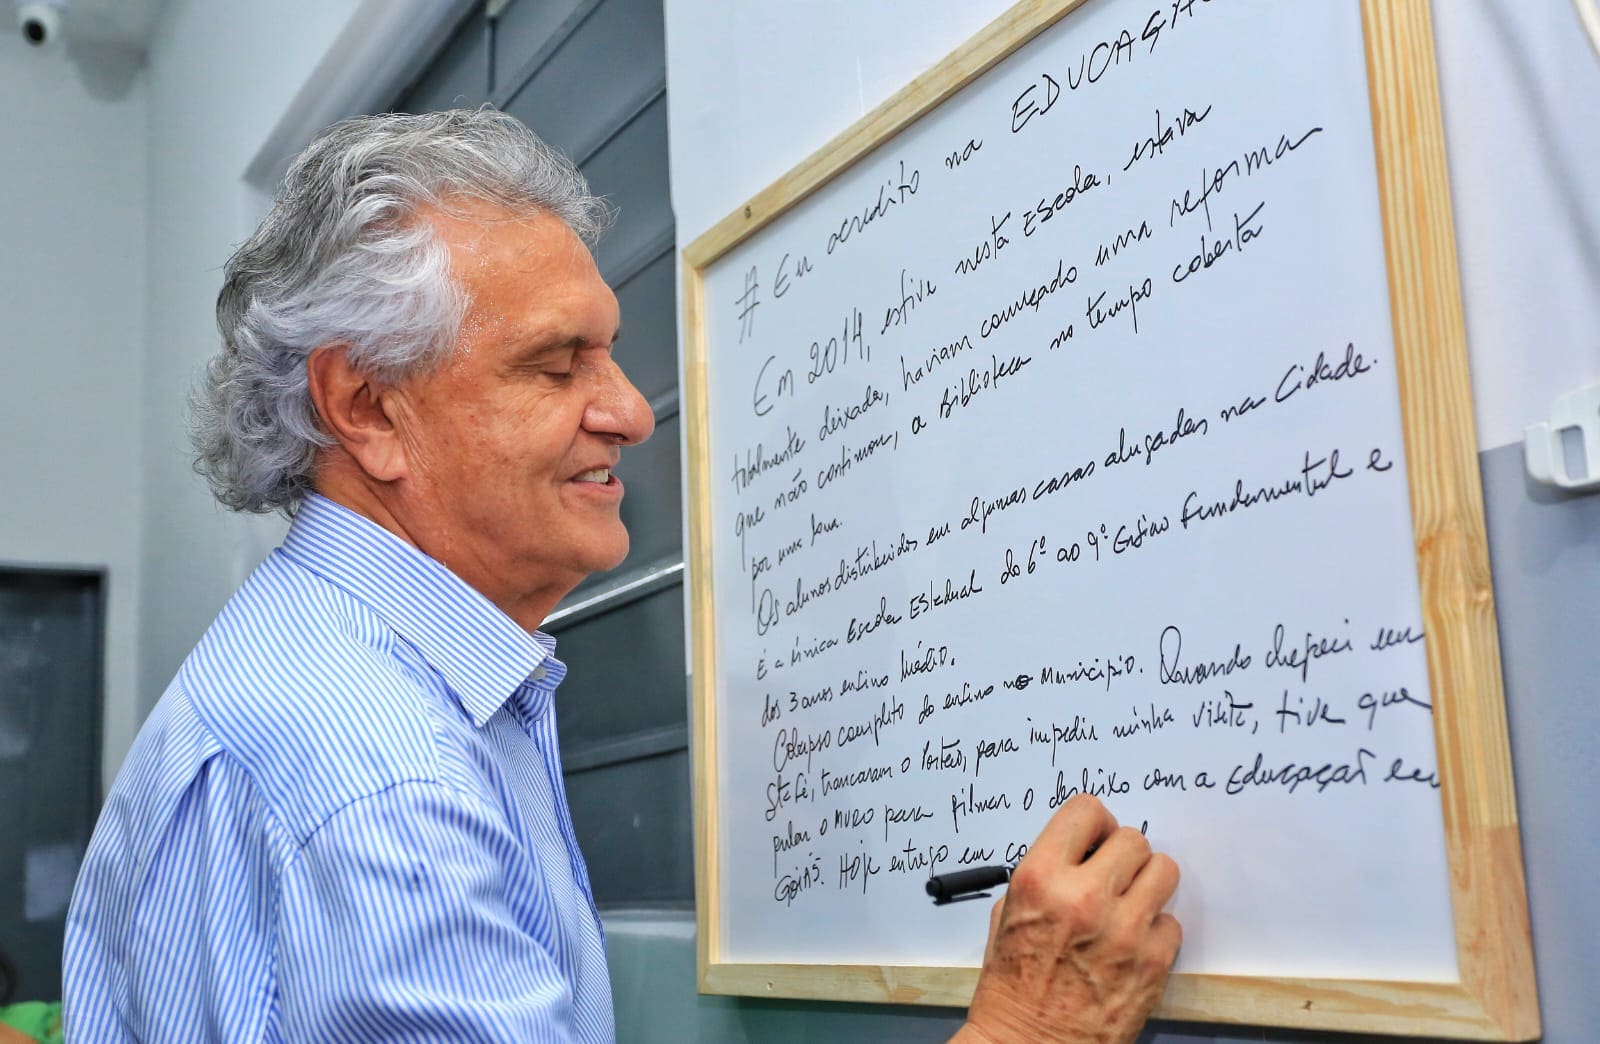 # Eu acredito na EDUCAÇÃO
Em 2014, estive nesta Escola, estava
totalmente deixada, haviam começado uma reforma
que não continuou, a Biblioteca no tempo coberta
por uma lona.
Os alunos distribuidos em algumas casas alugadas na Cidade.
É a única Escola Estadual do 6º ao 9º Ensino Fundamental e
dos 3 anos ensino Médio.
Colapso completo do ensino no Municipio. Quando cheguei em
Sta Fé, trancaram o Portão, para impedir minha visita, tive que
pular o MURO para filmar o desleixo com a Educação em
GOIÁS. Hoje entrego em